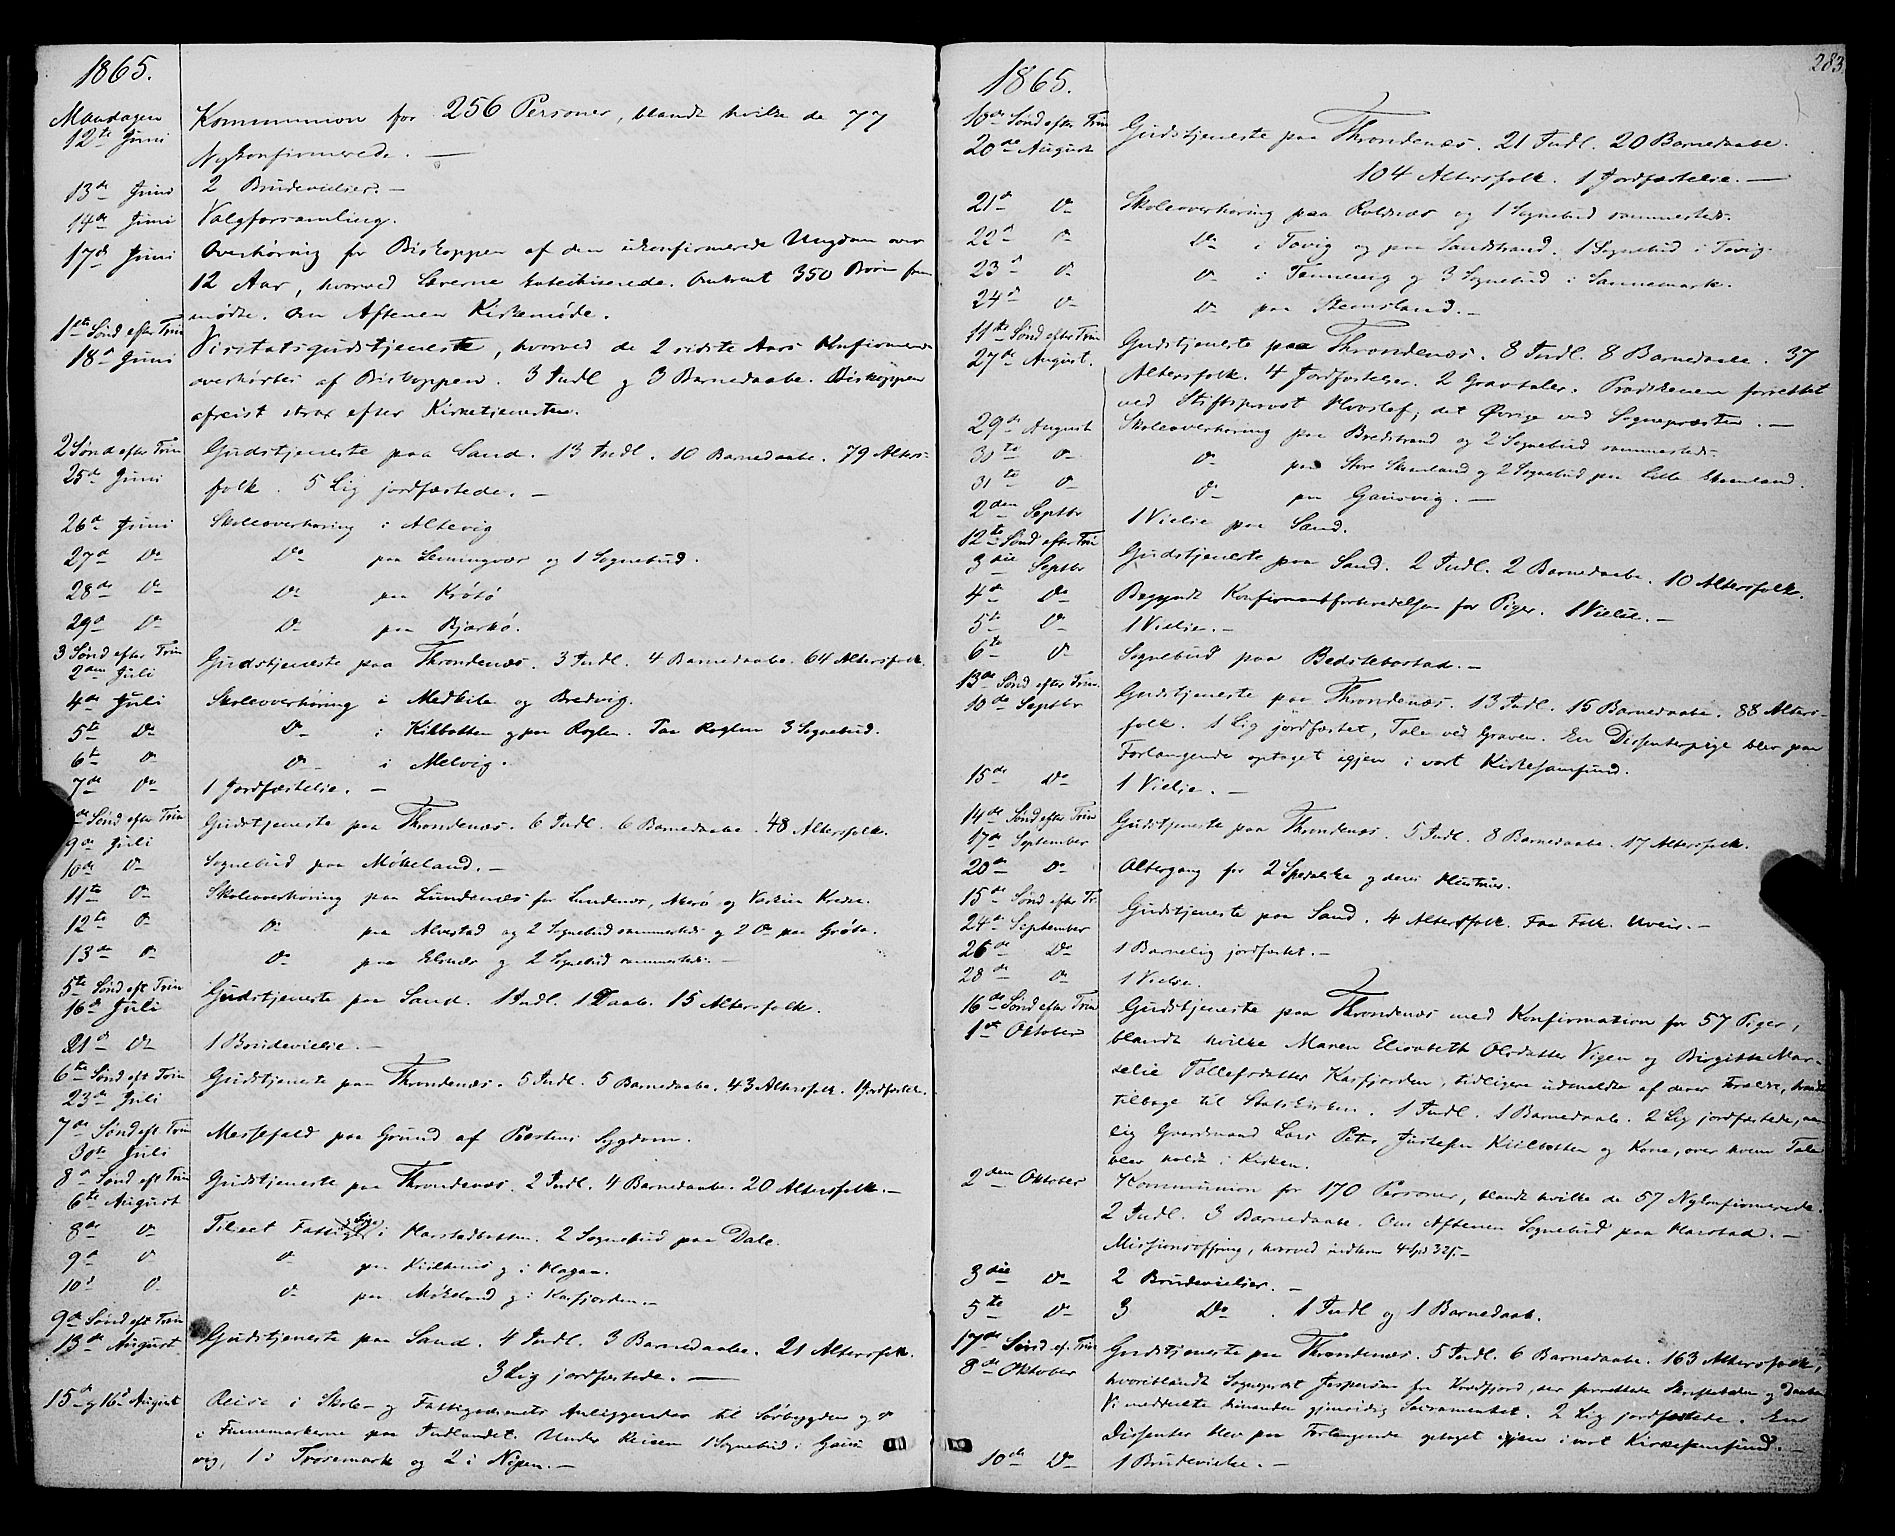 1865.
Mandagen Kommunion for 256 Personer, blandt hvilke de 77
12te Juni Nykonfirmerede. —
13de Juni 2 Brudevielser. —
14de Juni Valgforsamling.
17de Juni Overhøring for Biskoppen af den ukonfirmerede Ungdom over
12 Aar, hvorved Lærerne katechiserede. Omtrent 350 Børn frem
mødte. Om Aftenen Kirkemøde.
1ste Sønd efter Trin
18de Juni Visitatsgudstjeneste, hvorved de 2 sidste Aars Konfirmerede
overhørtes af Biskoppen. 3 Indl. og 3 Barnedaabe. Biskoppen
afreist strax efter Kirketjenesten.
2 Sønd efter Trin Gudstjeneste paa Sand. 13 Indl. 10 Barnedaabe. 79 Alters-
25de Juni folk. 5 Lig jordfæstede. —
26de Juni Skoleoverhøring i Altevig
27de Do Do paa Leminingvær og 1 Sognebud.
28de Do Do paa Krøtø
29de Do Do paa Bjarkø.
3 Sønd efter Trin
2den Juli Gudstjeneste paa Throndenæs. 3 Indl. 4 Barnedaabe. 64 Altersfolk.
4de Juli Skoleoverhøring i Medkile og Bredvig.
5te Do Do i Kilbotten og paa Roglen. Paa Roglen 3 Sognebud.
6te Do Do i Melvig.
7de Do 1 Jordfæstelse. —
Sønd efter Trin
9de Juli Gudstjeneste paa Throndenæs. 6 Indl. 6 Barnedaabe. 48 Altersfolk.
10de Do Sognebud paa Møkeland. —
11te Do Skoleoverhøring paa Lundenæs for Lundenæs, Kredse.
12te Do Do paa Alvestad og 2 Sognebud sammesteds og 2 Do paa Grøtø.
13de Do Do paa Elsnæs og 2 Sognebud sammesteds. —
5te Sønd eft Trin
16de Juli Gudstjeneste paa Sand. 1 Indl. 1 Daab. 15 Altersfolk.
21de Do 1 Brudevielse. —
6te Sønd eft Trin
23de Juli Gudstjeneste paa Throndenæs. 5 Indl. 5 Barnedaabe. 43 Altersfolk. 1 Jordfæstelse.
7de Sønd eft Trin
30te Juli Messefald paa Grund af Præstens Sygdom.
8de Sønd eft Trin
6te August Gudstjeneste paa Throndenæs. 2 Indl. 4 Barnedaabe. 20 Altersfolk. —
8de Do Tilseet Fattige i Harstadbotten. 2 Sognebud paa Dale.
9de Do Do paa og i Hagan.
10de Do Do paa Møkeland og i Kasfjorden. —
9de Sønd eft Trin
13de August Gudstjeneste paa Sand. 4 Indl. 3 Barnedaabe. 21 Altersfolk.
3 Lig jordfæstede. —
15de og 16de August Reise i Skole- og Fattigvæsenets Anliggender til Sørbygden og
i Finnemarkerne paa Indlandet. Under Reisen 1 Sognebud i Gaus-
vig, 1 i Trøsemark og 2 i Nipen. —
283
1865.
10de Sønd efter Trin
20de August Gudstjeneste paa Throndenæs. 21 Indl. 20 Barnedaabe.
104 Altersfolk. 1 Jordfæstelse. —
21de Do Skoleoverhøring paa Rolsnæs og 1 Sognebud sammesteds.
22de Do Do i Tovig og paa Sandstrand. 1 Sognebud i Tovig.
23de Do Do i Tennevig og 3 Sognebud i Sannemark.
24de Do Do paa Stensland. —
11te Sønd efter Trin
27de August. Gudstjeneste paa Throndenæs. 8 Indl. 8 Barnedaabe. 37
Altersfolk. 4 Jordfæstelser. 2 Gravtaler. Prædikenen forrettet
ved Stiftsprovst Hvoslef, det Øvrige ved Sognepræsten. —
29de August Skoleoverhøring paa Bredstrand og 2 Sognebud sammesteds.
30te Do Do paa Store Skienland og 2 Sognebud paa Lille Skienland.
31te Do Do paa Gausvig. —
2den Septbr 1 Vielse paa Sand.
12te Sønd efter Trin
3die Septbr Gudstjeneste paa Sand. 2 Indl. 2 Barnedaabe. 10 Altersfolk.
4de Do Begyndt Konfirmantforberedelsen for Piger. 1 Vielse. —
5te Do 1 Vielse. —
6te Do Sognebud paa Bedstebostad. —
13de Sønd efter Trin.
10de Septbr Gudstjeneste paa Throndenæs. 13 Indl. 15 Barnedaabe. 88 Alters-
folk. 1 Lig jordfæstet, Tale ved Graven. En Dissenterpige blev paa
Forlangende optaget igjen i vort Kirkesamfund.
15de Do 1 Vielse. —
14de Sønd efter Trin
17de September Gudstjeneste paa Throndenæs. 5 Indl. 8 Barnedaabe. 17 Altersfolk.
20de Do Altergang for 2 Spedalske og deres Hustruer.
15de Sønd efter Tr.
24de September Gudstjeneste paa Sand. 4 Altersfolk. Faa Folk. Uveir. —
26de Do 1 Barnelig jordfæstet. —
28de Do 1 Vielse.
16de Sønd efter Trin
1ste Oktober Gudstjeneste paa Throndenæs med Konfirmation for 57 Piger,
blandt hvilke Maren Elisabeth Olsdatter Vigen og Birgitte Mar-
selie Tollefsdatter Kasfjorden, tidligere udmeldte af deres Forældre, traadte
tilbage til Statskirken. 1 Indl. 1 Barnedaab. 2 Lig jordfæstede, nem
lig Gaardmand Lars Peter Justesen Kiilbotten og Kone, over hvem Tale
blev holdt i Kirken.
2den Oktober Kommunion for 170 Personer, blandt hvilke de 57 Nykonfirmerede.
2 Indl. 3 Barnedaabe. Om Aftenen Sognebud paa Harstad. —
Missionsoffring, hvorved indkom 4 Spd 32 s. —
3die Do 2 Brudevielser. —
5te Do 3 Do. 1 Indl og 1 Barnedaab.
17de Sønd ef. Trin
8de Oktober Gudstjeneste paa Throndenæs. 5 Indl. 6 Barnedaabe. 163 Altersfolk,
hvoriblandt Sognepræst Jespersen fra Kvædfjord, der forrettede Skriftetalen og Daaben.
Vi meddeelte hinanden gjensidig Sacramentet. 2 Lig jordfæstede. En
Dissenter blev paa Forlangende optaget igjen i vort Kirkesamfund. —
10de Do 1 Brudevielse. —